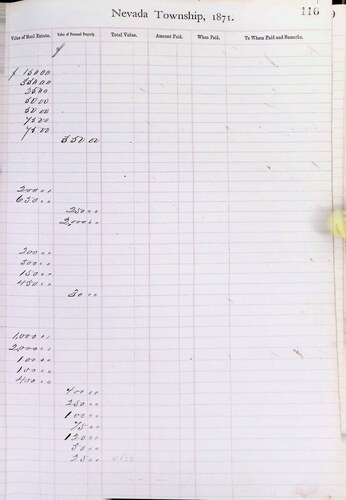 Nevada Township, 1871.
116
Value of Real Estate. Value of Personal Property. Total Value. Amount Paid. When Paid. To Whom Paid and Remarks.
150 00
350 00
25 00
50 00
50 00
75 00
75 00
550 00
200 00
650 00
250 00
2,000 00
200 00
300 00
150 00
450 00
50 00
1,000 00
2,000 00
100 00
100 00
400 00
400 00
250 00
100 00
75 00
120 00
50 00
25 00